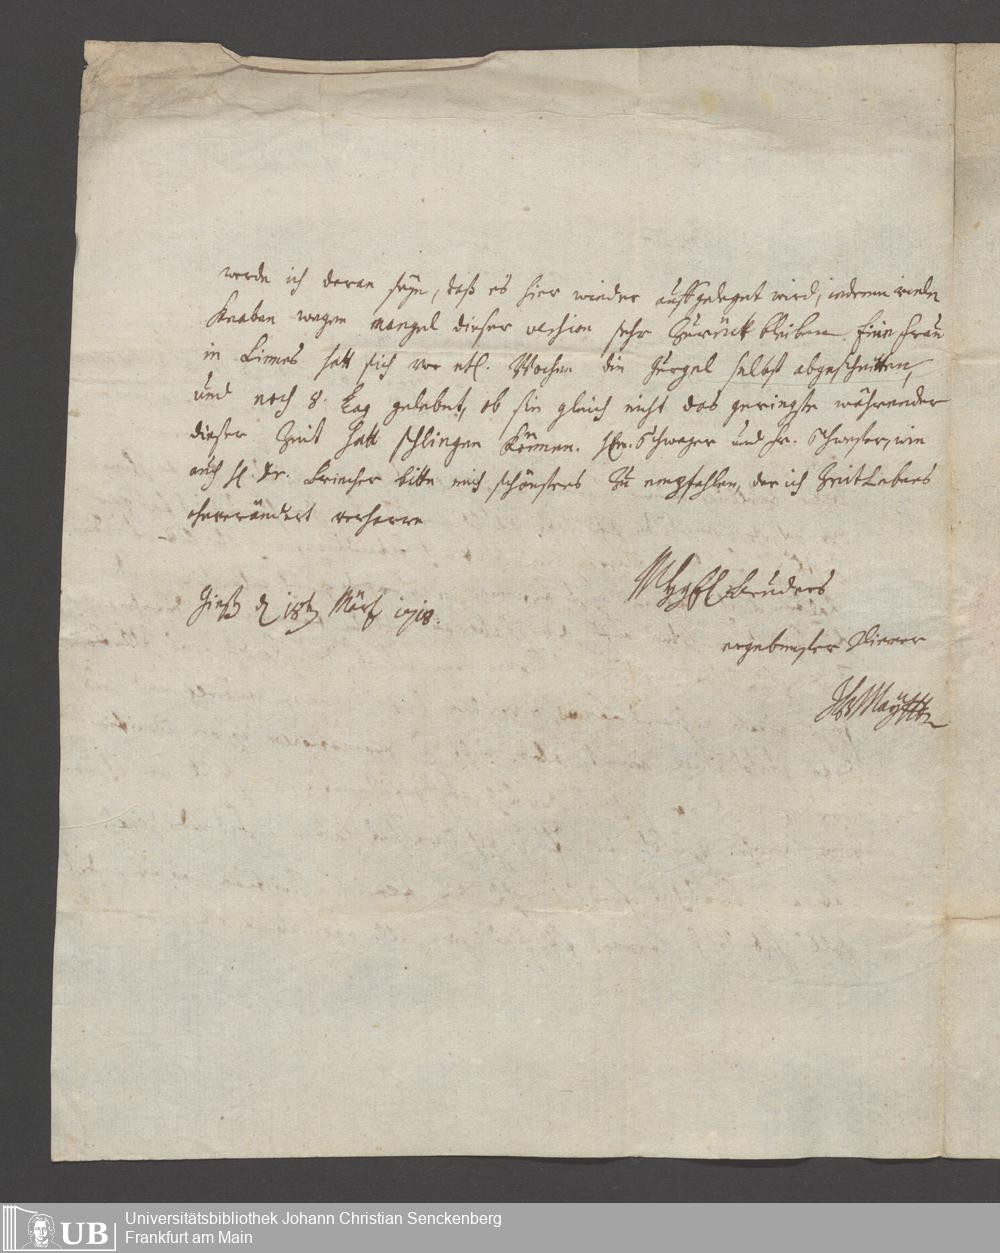 werde ich daran seyn, daß es hier wieder auffgeleget wird, indem viele
Knaben wegen mangel dieser version sehr zurück bleiben. Eine Frau
in hatt sich vor etl. Wochen die Gurgel selbst abgeschnitten,
und noch 8. Tag gelebet, ob sie gleich nicht das geringste während
dieser Zeit hatt schlingen können. Hn. Schwager und Fr. Schwester, wie
auch H. Dr. bitte mich schönstens zu empfehlen, der ich Zeit Lebens
ohnverändert verharre
Bruders
Gieß d 18t Märtz 1718.
ergebenster Diener
Universitätsbibliothek Johann Christian Senckenberg
Frankfurt am Main
UB